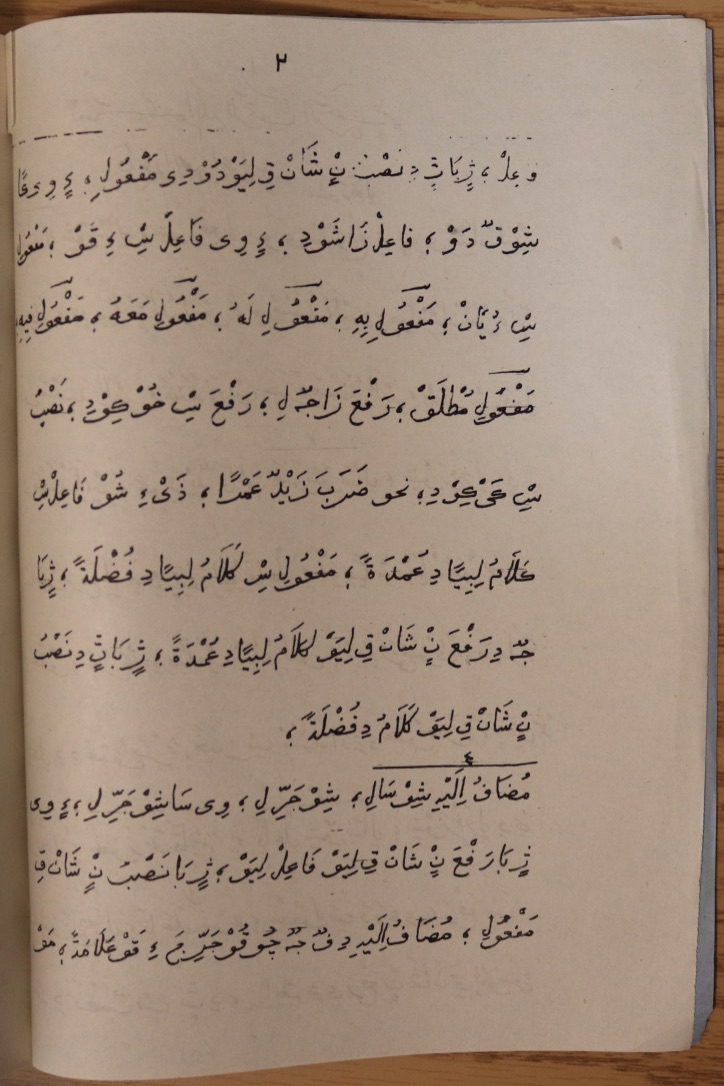 ٢
وَعِلْ ؛ ژِبَاتٍ دِ نَصْبُ ثٍ شَانْ قِ لِيَوْ دُوْ دِى مَفْعُولِ ؛ ءِ وِى عًا
شِوْقٌ دَوْ ؛ فَاعِلْ زَاشَوْدِ ؛ ءِ وِى فَاعِلْ سْ ءِ قَوْ ؛ مَفْعُولِ
سْ ءُيَانْ ؛ مَفْعُولِ بِهِ ؛ مَفْعُولِ لَهُ ؛ مَفْعُولِ مَعَهُ ؛ مَفْعُولِ فِيهِ ؛
مَفْعُولِ مُطْلَقْ ؛ رَفْعَ زَاجٌ لِ ؛ رَفْعَ سْ خُوْ كِوْدِ ؛ نَصْبُ
سْ عَىْ كِوْدِ ؛ نحو ضَرَبَ زَيْدٌ عَمْرًا ؛ ذَىْ ءِ شُوْ فَاعِلْ سْ
كَلَامُ لِيِيًا دِ عُمْدَةً ؛ مَفْعُولِ سْ كَلَامُ لِيِيًا دِ فُضْلَةً ؛ ژِبَا
جٌ دِ رَفْعَ ثٍ شَانْ قِ لِيَوْ كَلَامُ لِيِيًا دِ عُمْدَةً ؛ ژِبَاتٍ دِ نَصْبُ
ثٍ شَانْ قِ لِيَوْ كَلَامُ دِ فُضْلَةً ؛
٤
مُضَافُ اِلَيْهِ شِوْ سَالِ ؛ شِوْ جَرِّ لِ ؛ وِى سَا شِوْ جَرِّ لِ ؛ ءِ وِى
ژِبَا رَفْعَ ثٍ شَانْ قِ لِيَوْ فَاعِلْ لِيَوْ ؛ ژِبَا نَصْبُ ثٍ شَانْ قِ
مَفْعُولِ ؛ مُضَافُ اِلَيْهِ دِ فٌ جٌ جُوْ قُوْ جَرِّ مَ ءِ قَوْ عَلَامَةً ؛ مَوْ